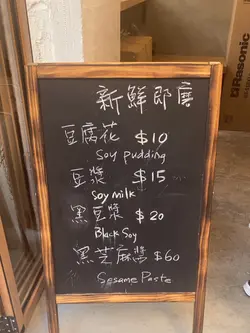 Rasonic
新鮮即磨
豆腐花 $10
Soy pudding
豆漿 $15
Soy milk
黑豆漿 $20
Black Soy
黑芝麻醬 $60
Sesame Paste